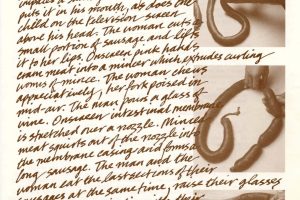 impales a
puts it in his mouth, as does the
child on the television screen
above his head. The woman cuts a
small portion of sausage and lifts
it to her lips. Onscreen pink hands
cram meat into a mincer which extrudes curling
worms of mince. The woman chews
appreciatively, her fork poised in
mid-air. The man pours a glass of
wine. Onscreen intestinal membrane
is stretched over a nozzle. Minced
meat spurts out of the nozzle into
the membrane casing and forms a
long sausage. The man and the
woman eat the last sections of their
sausages at the same time, raise their glasses